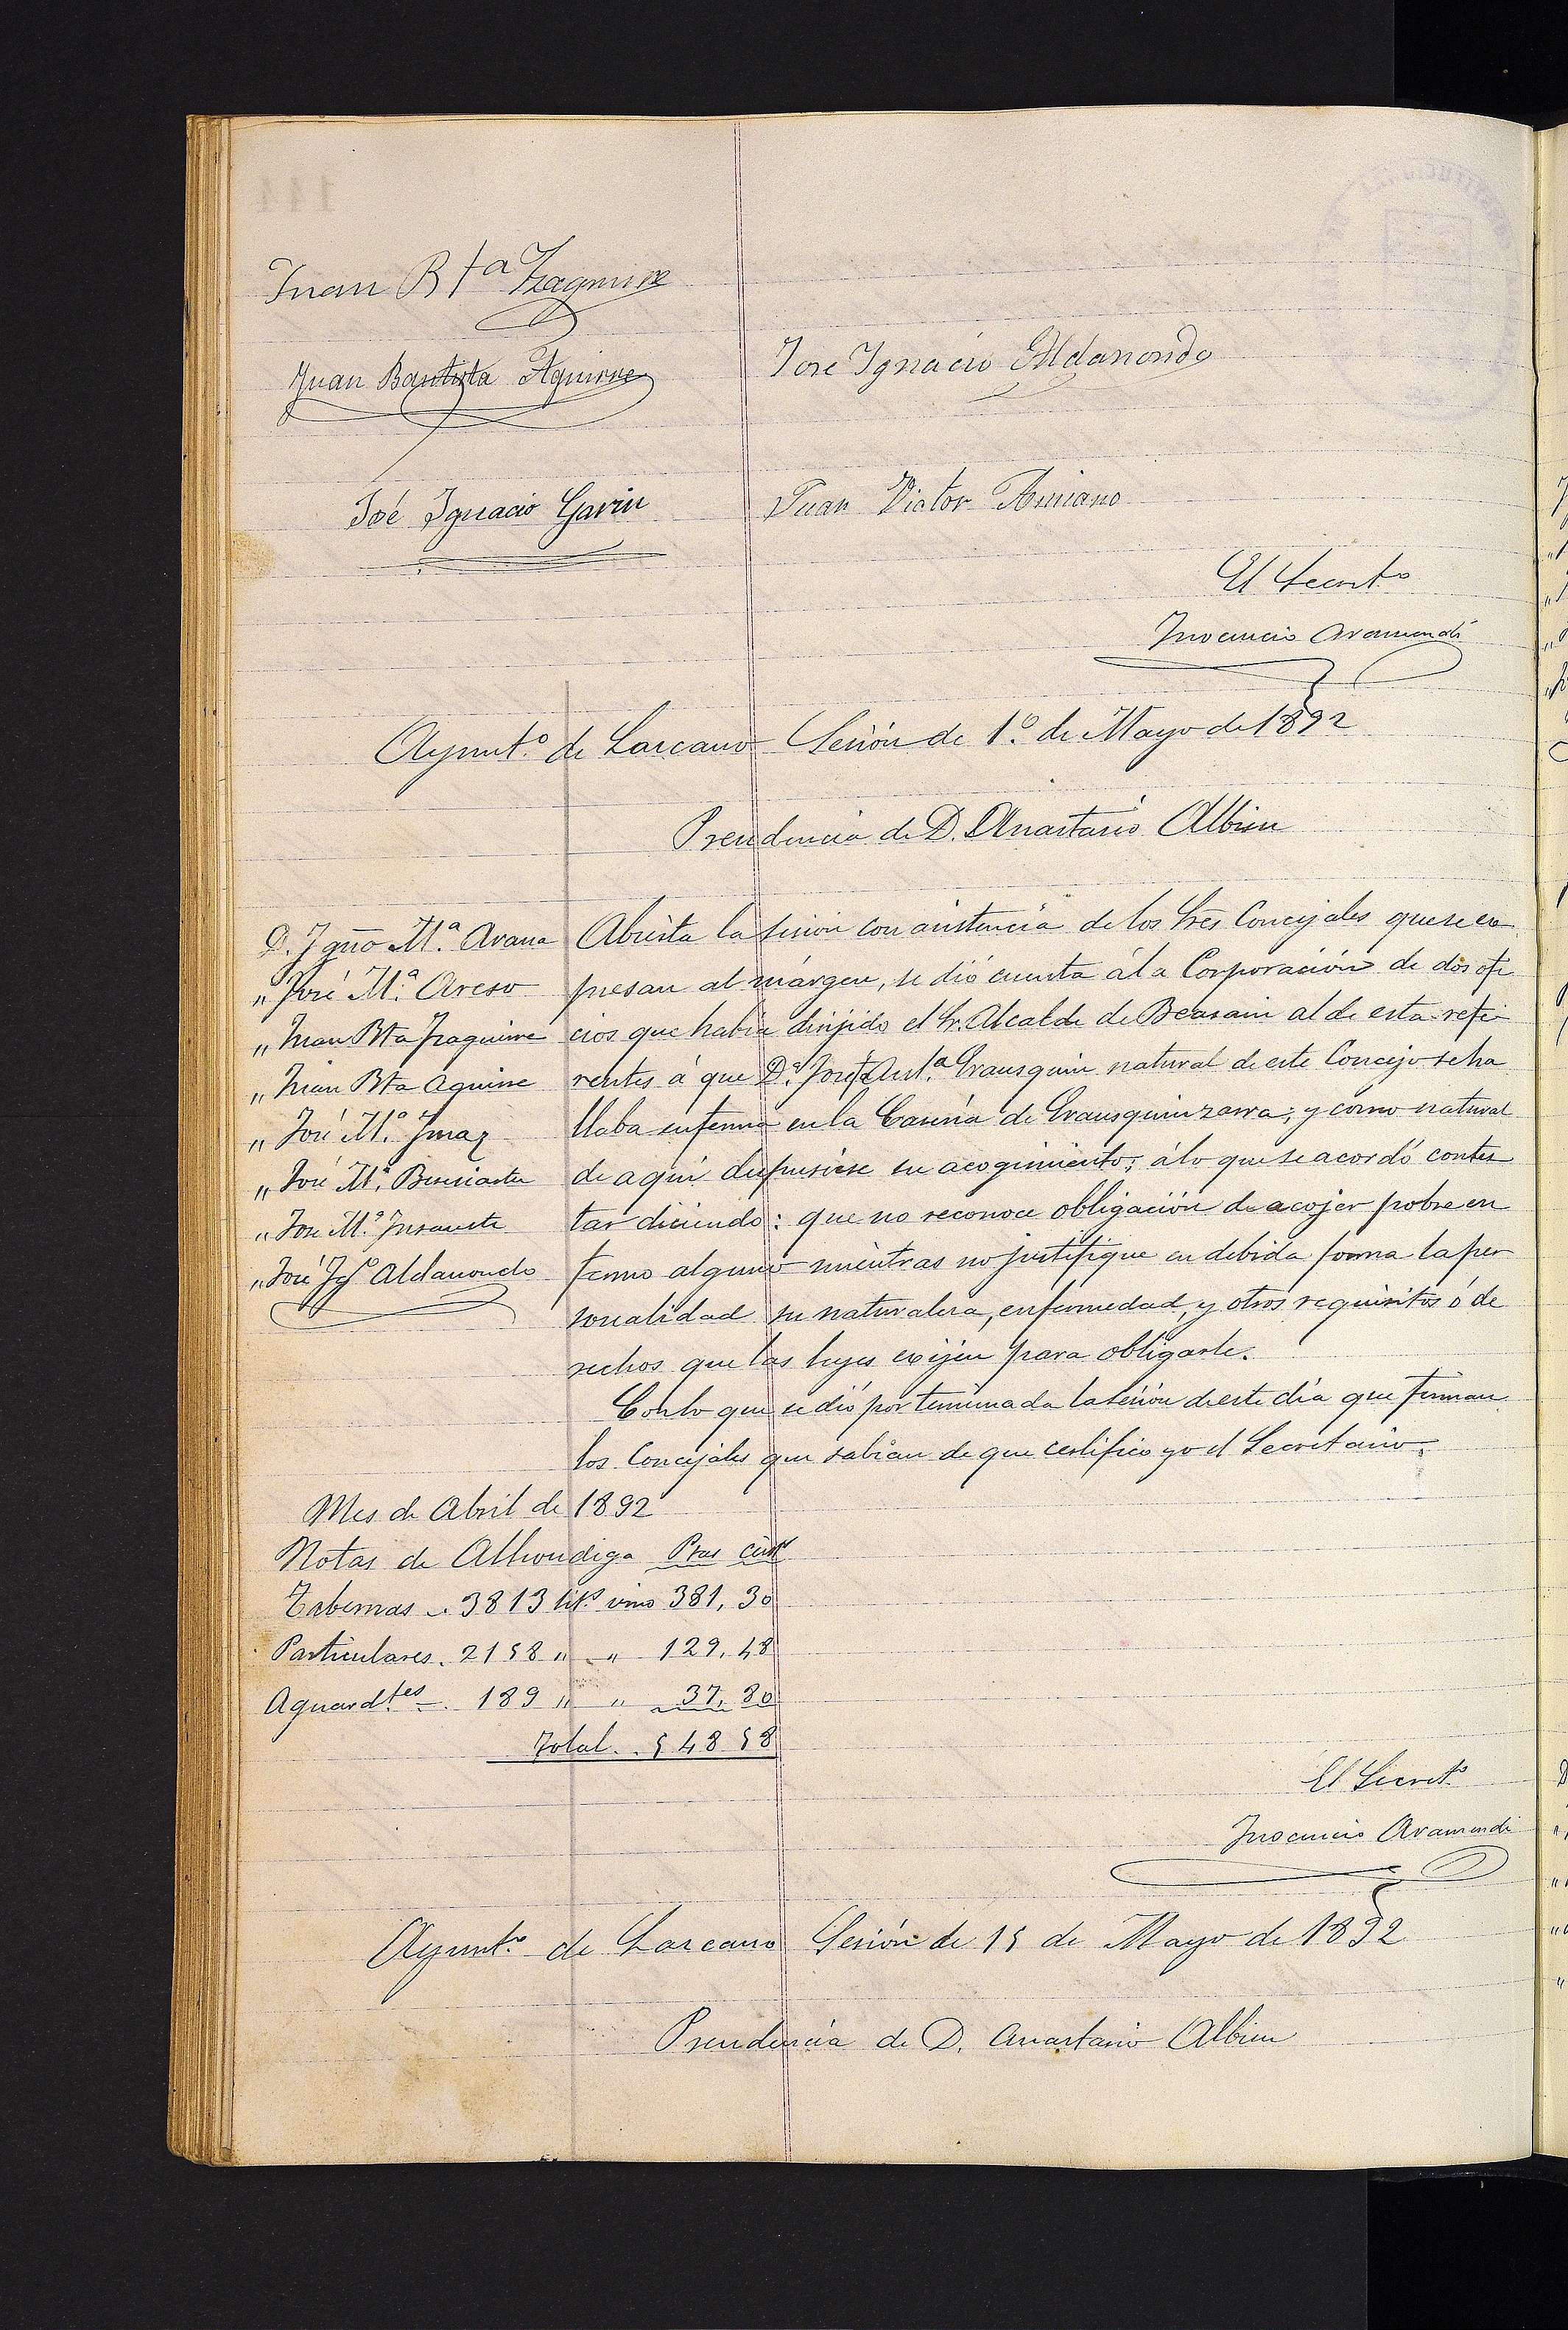 Juan Bta Yzaguirre
Juan Bautista Aguirre
José Ignacio Aldanondo
José Ygnacio Garin
Juan Victor
El Secreto
Ynocencio Aramendi
Ayuntº de Lazcano Sesión de 1º de Mayo de 1892
Presidencia de D. Anastasio Albisu
D. Ygnº Mª Arana
" José Mª Areso
" Juan Bta Yzaguirre
" Juan Bta Aguirre
" José Mº Ymaz
" José Mª
" Jose Mª Ynsausti
" José Ygº Aldanondo
Abierta la sesion con asistencia de los Sres Concejales que se ex
presan al márgen, se dió cuenta á la Corporación de dos ofi
cios que habia dirijido el Sr. Alcalde de Beasain al de esta refe
rentes á que Dª Josefa Antª Yrausquin natural de este Concejo se ha
llaba enferma en la Caseria de Yrausquinzarra; y como natural
de aquí dispusiese su acogimiento; á lo que se acordó contes
tar diciendo: que no reconoce obligación de acojer pobre en
fermo alguno mientras no justifique en debida forma la per
sonalidad su naturaleza, enfermedad, y otros requisitos ó de
rechos que las leyes exijen para obligarle.
Con lo que se dió por terminada la sesión de este dia que firman
los Concejales que sabian de que certifico yo el Secretario.
Mes de Abril de 1892
Notas de Alhondiga Ptas cents
Tabernas .. 3813 lits vino 381,30
Particulares. 2158 " " 129,48
Aguardtes . 189 " " 37,80
Total .. 548 58
El Secretº
Ynocencio Aramendi
Ayuntº de Lazcano Sesión de 15 de Mayo de 1892
Presidencia de D. Anastasio Albisu